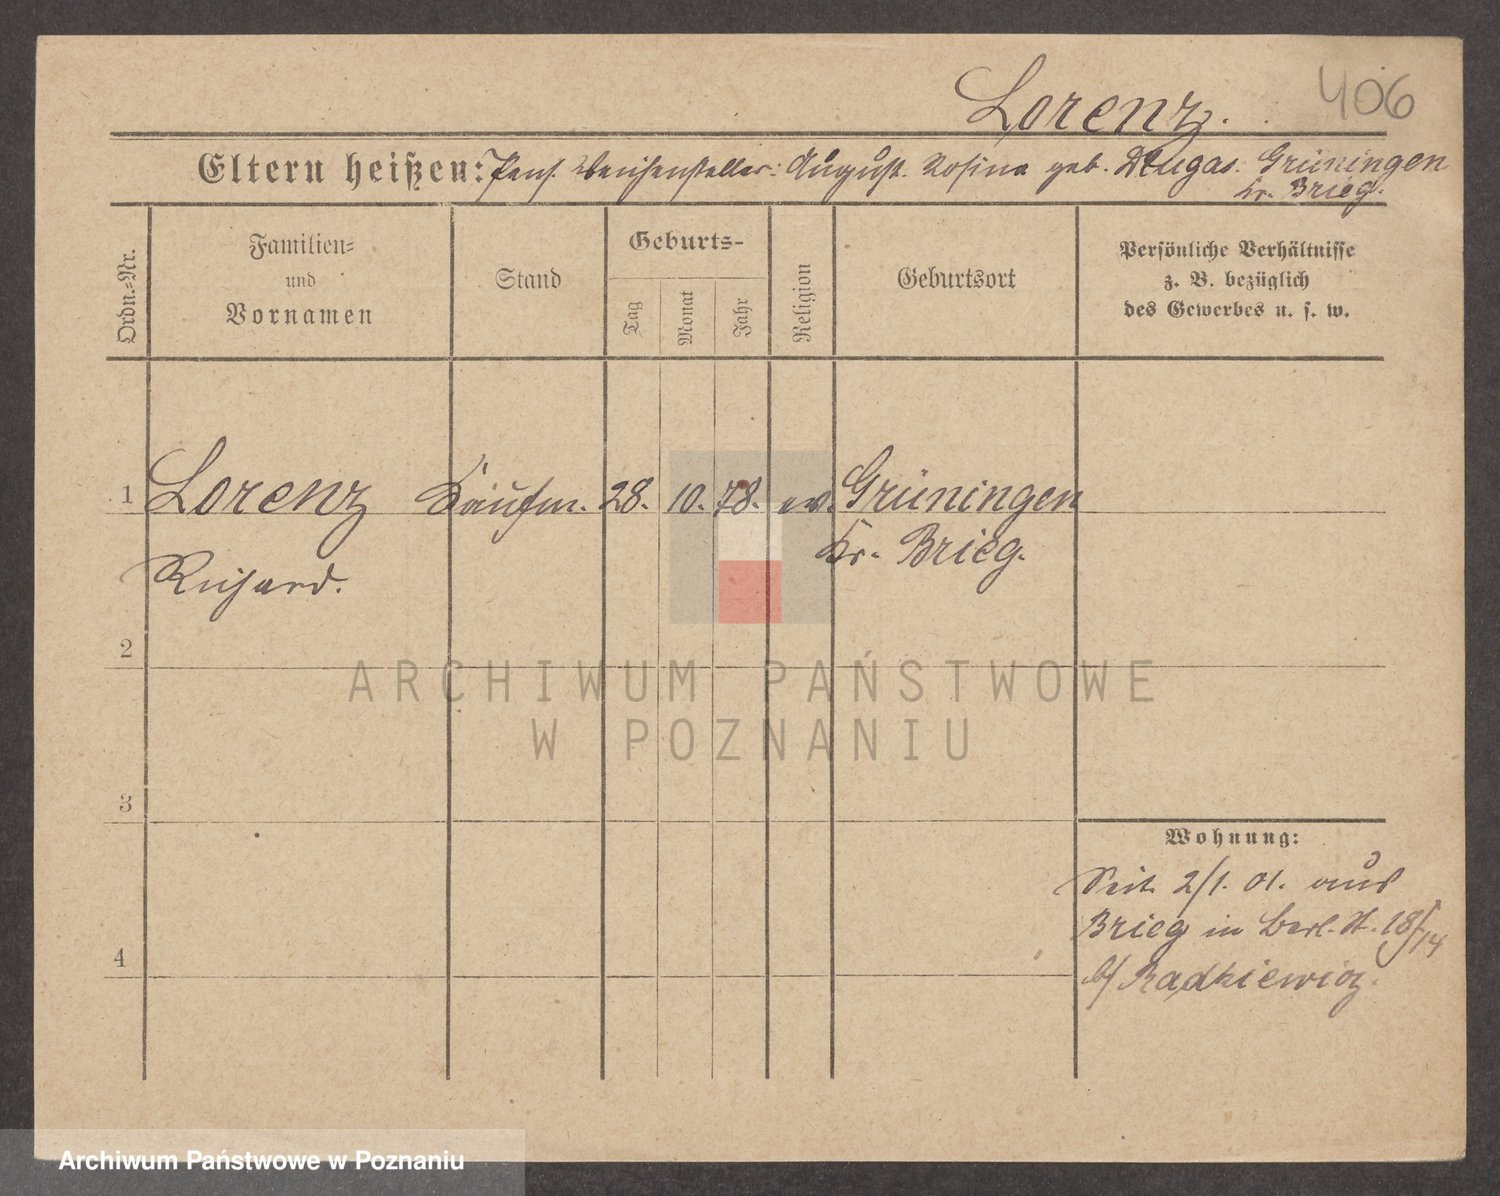 406
Lorenz.
Eltern heißen: Pens. Weichensteller: August. Rosina geb. Dlugas. Grüningen
Kr. Brieg.
Ordn.-Nr.
Familien-
und
Vornamen
Stand
Geburts-
Tag
Monat
Jahr
Religion
Geburtsort
Persönliche Verhältnisse
z. B. bezüglich
des Gewerbes u. s. w.
1 Lorenz Kaufm. 28. 10. 78. ev. Grüningen
Kr. Brieg.
Richard.
2
ARCHIWUM PAŃSTWOWE
W POZNANIU
3
Wohnung:
Seit 2/1. 01. aus
Brieg in Berl. St. 18/14
4
b/ Radkiewicz.
Archiwum Państwowe w Poznaniu